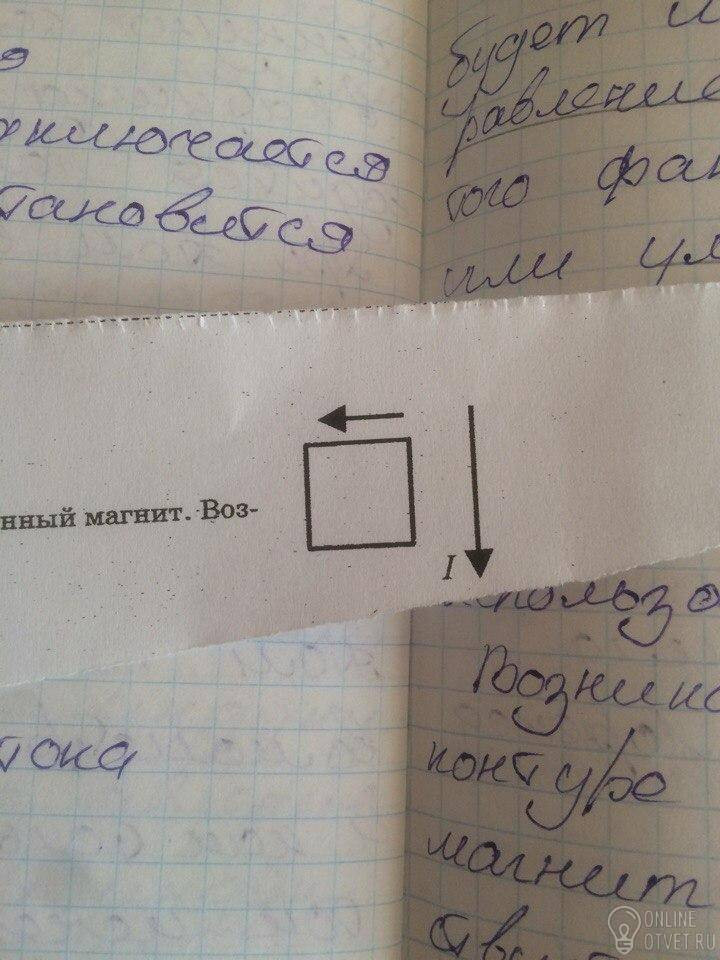 я
ключается
тановится
будет и
равление
того фак
или ум
нный магнит. Воз-
I
использо
Возника
контуре
магнит
тока
ONLINE
OTVET.RU